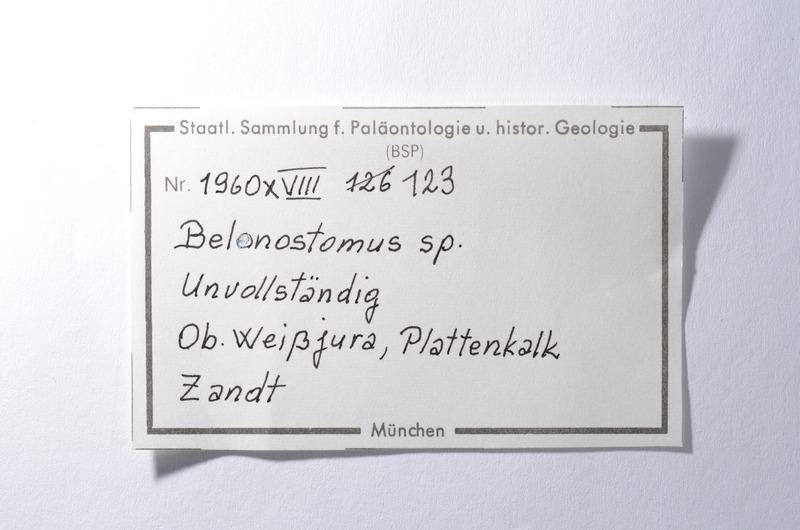 Staatl. Sammlung f. Paläontologie u. histor. Geologie
(BSP)
Nr. 1960xVIII 126 123
Belonostomus sp.
Unvollständig
Ob. Weißjura, Plattenkalk
Zandt
München